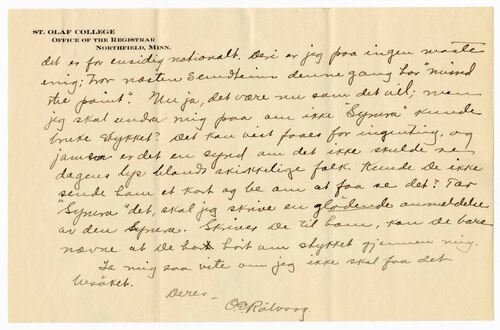 ST. OLAF COLLEGE
OFFICE OF THE REGISTRAR
NORTHFIELD, MINN.
det er for ensidig nationalt. Deri er jeg paa ingen maate
enig; tror næsten denne gang har "missed
the point". Nu ja, det være nu som det vil; men
jeg skal undre mig paa om ikke "Symra" kunde
bruke stykket? Det kan veit faaes for ingenting, og
jamen er det en synd om det ikke skulde se
dagens lys blandt skikkelige folk. Kunde De ikke
sende ham et kort og be om at faa se det? Tar
"Symra" det, skal jeg skrive en glødende anmeldelse
av den Symra. Skrives De til ham, kan De bare
nævne at De har hørt om stykket gjennem mig.
La mig saa vite om jeg ikke skal faa det
besøket.
Deres
O.E. Rølvaag